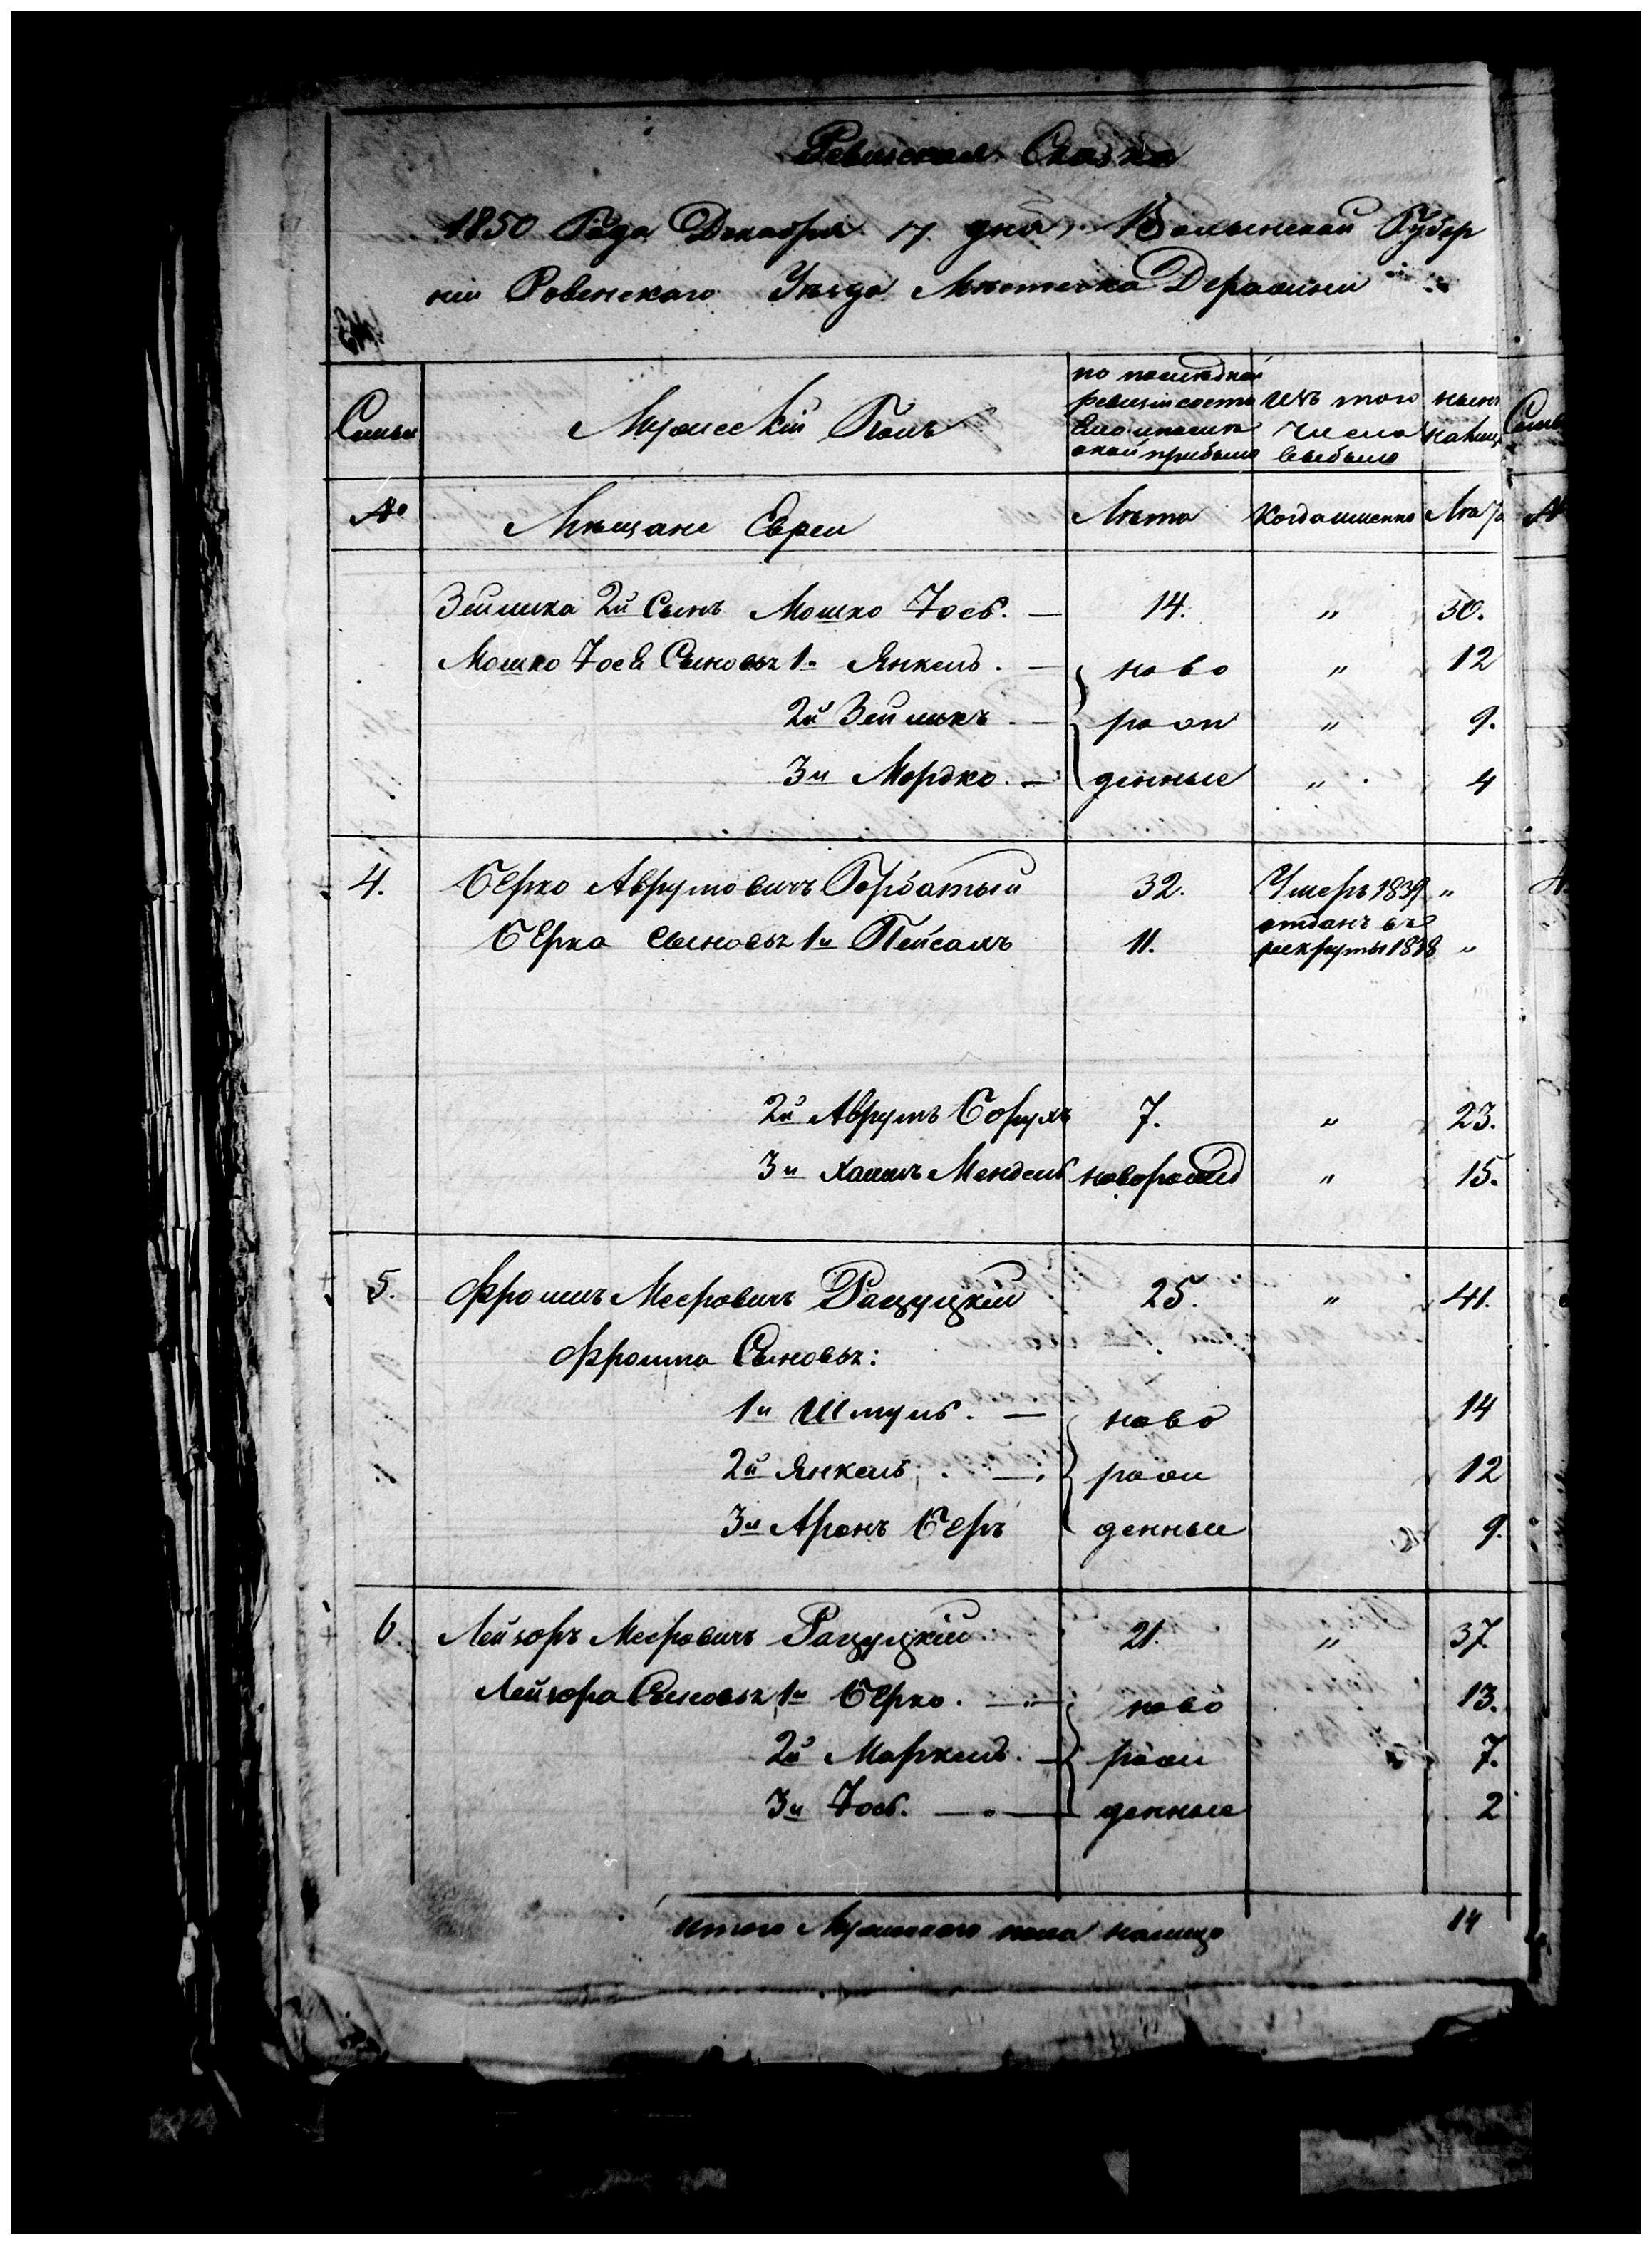 Ревиская Сказка
1850 Года Декабря 17 дня, Волынской Губер
нии Ровенскаго Уѣзда Мѣстечка Деражни
Семьи
Мужескій Полъ
по последней
ревизіи состо
яло и после
оной прибыло
изъ того
числа
выбыло
ныне
на лицо
№
Мѣщане Евреи
Лѣта
Когда именно
Лѣта
Зейлика 2й Сынъ Мошко Іось. — 14. " 30.
Мошко Іося Сыновья 1й Янкель. — ново " 12
2й Зейликъ. — рож " 9.
3й Мордко. — денные " 4
4. Берко Аврумовичъ Горбатый 32. Умеръ 1839 "
Берка Сыновья 1й Пейсахъ 11. отданъ въ рекруты 1838 "
2й Аврумъ Борухъ 7. " 23.
3й Хаимъ Мендель новорожд " 15.
5. Фроимъ Меeровичъ Рацуцкій 25. " 41.
Фроима Сыновья:
1й Шмуль. — ново 14
2й Янкель. — рож 12
3й Аронъ Беръ денные 9.
6 Лейзоръ Мееровичъ Рацуцкій 21. " 37
Лейзора Сыновья 1й Берко. — ново 13.
2й Маркель. — рож 7.
3й Іось. — денные 2
итого Мужескаго пола налицо 14